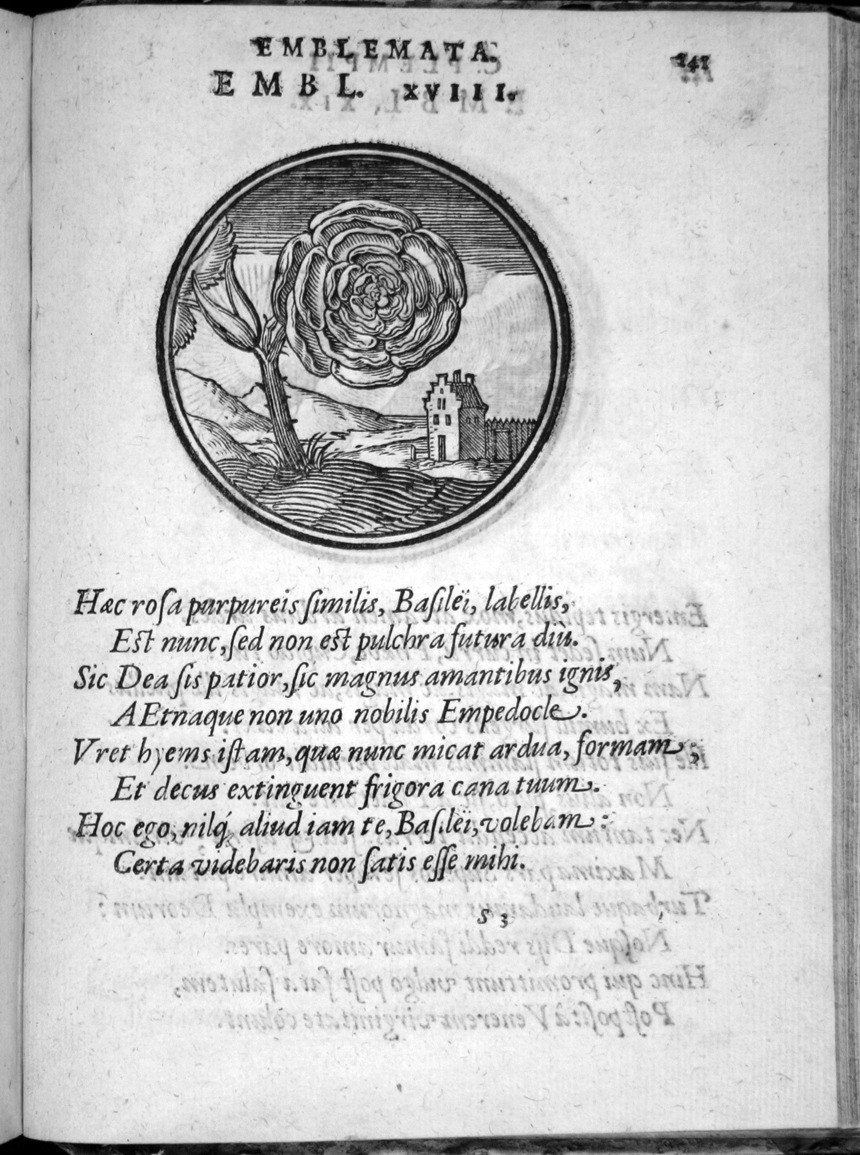 EMBLEMATA.
141
EMBL. XVIII.
Hæc rosa purpureis similis, Basileï, labellis,
Est nunc, sed non est pulchra futura diu.
Sic Dea sis patior, sic magnus amantibus ignis,
AEtnaque non uno nobilis Empedocle.
Vret hyems istam, quæ nunc micat ardua, formam;
Et decus extinguent frigora cana tuum.
Hoc ego, nilq́; aliud iam te, Basileï, volebam:
Certa videbaris non satis esse mihi.
S 3